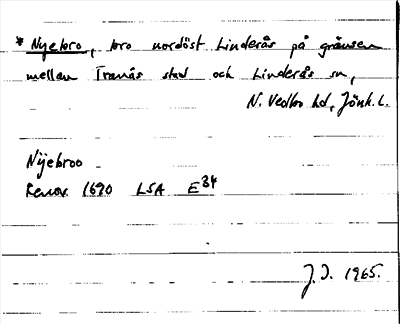 * Nyebro, bro nordöst Linderås på gränsen
mellan Tranås stad och Linderås sn,
N. Vedbo hd, Jönk. L.
Nÿebroo
Renov. 1690 LSA E34
J.I. 1965.